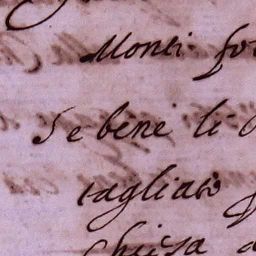 Monti fo
Se bene li
tagliare
Chiesa